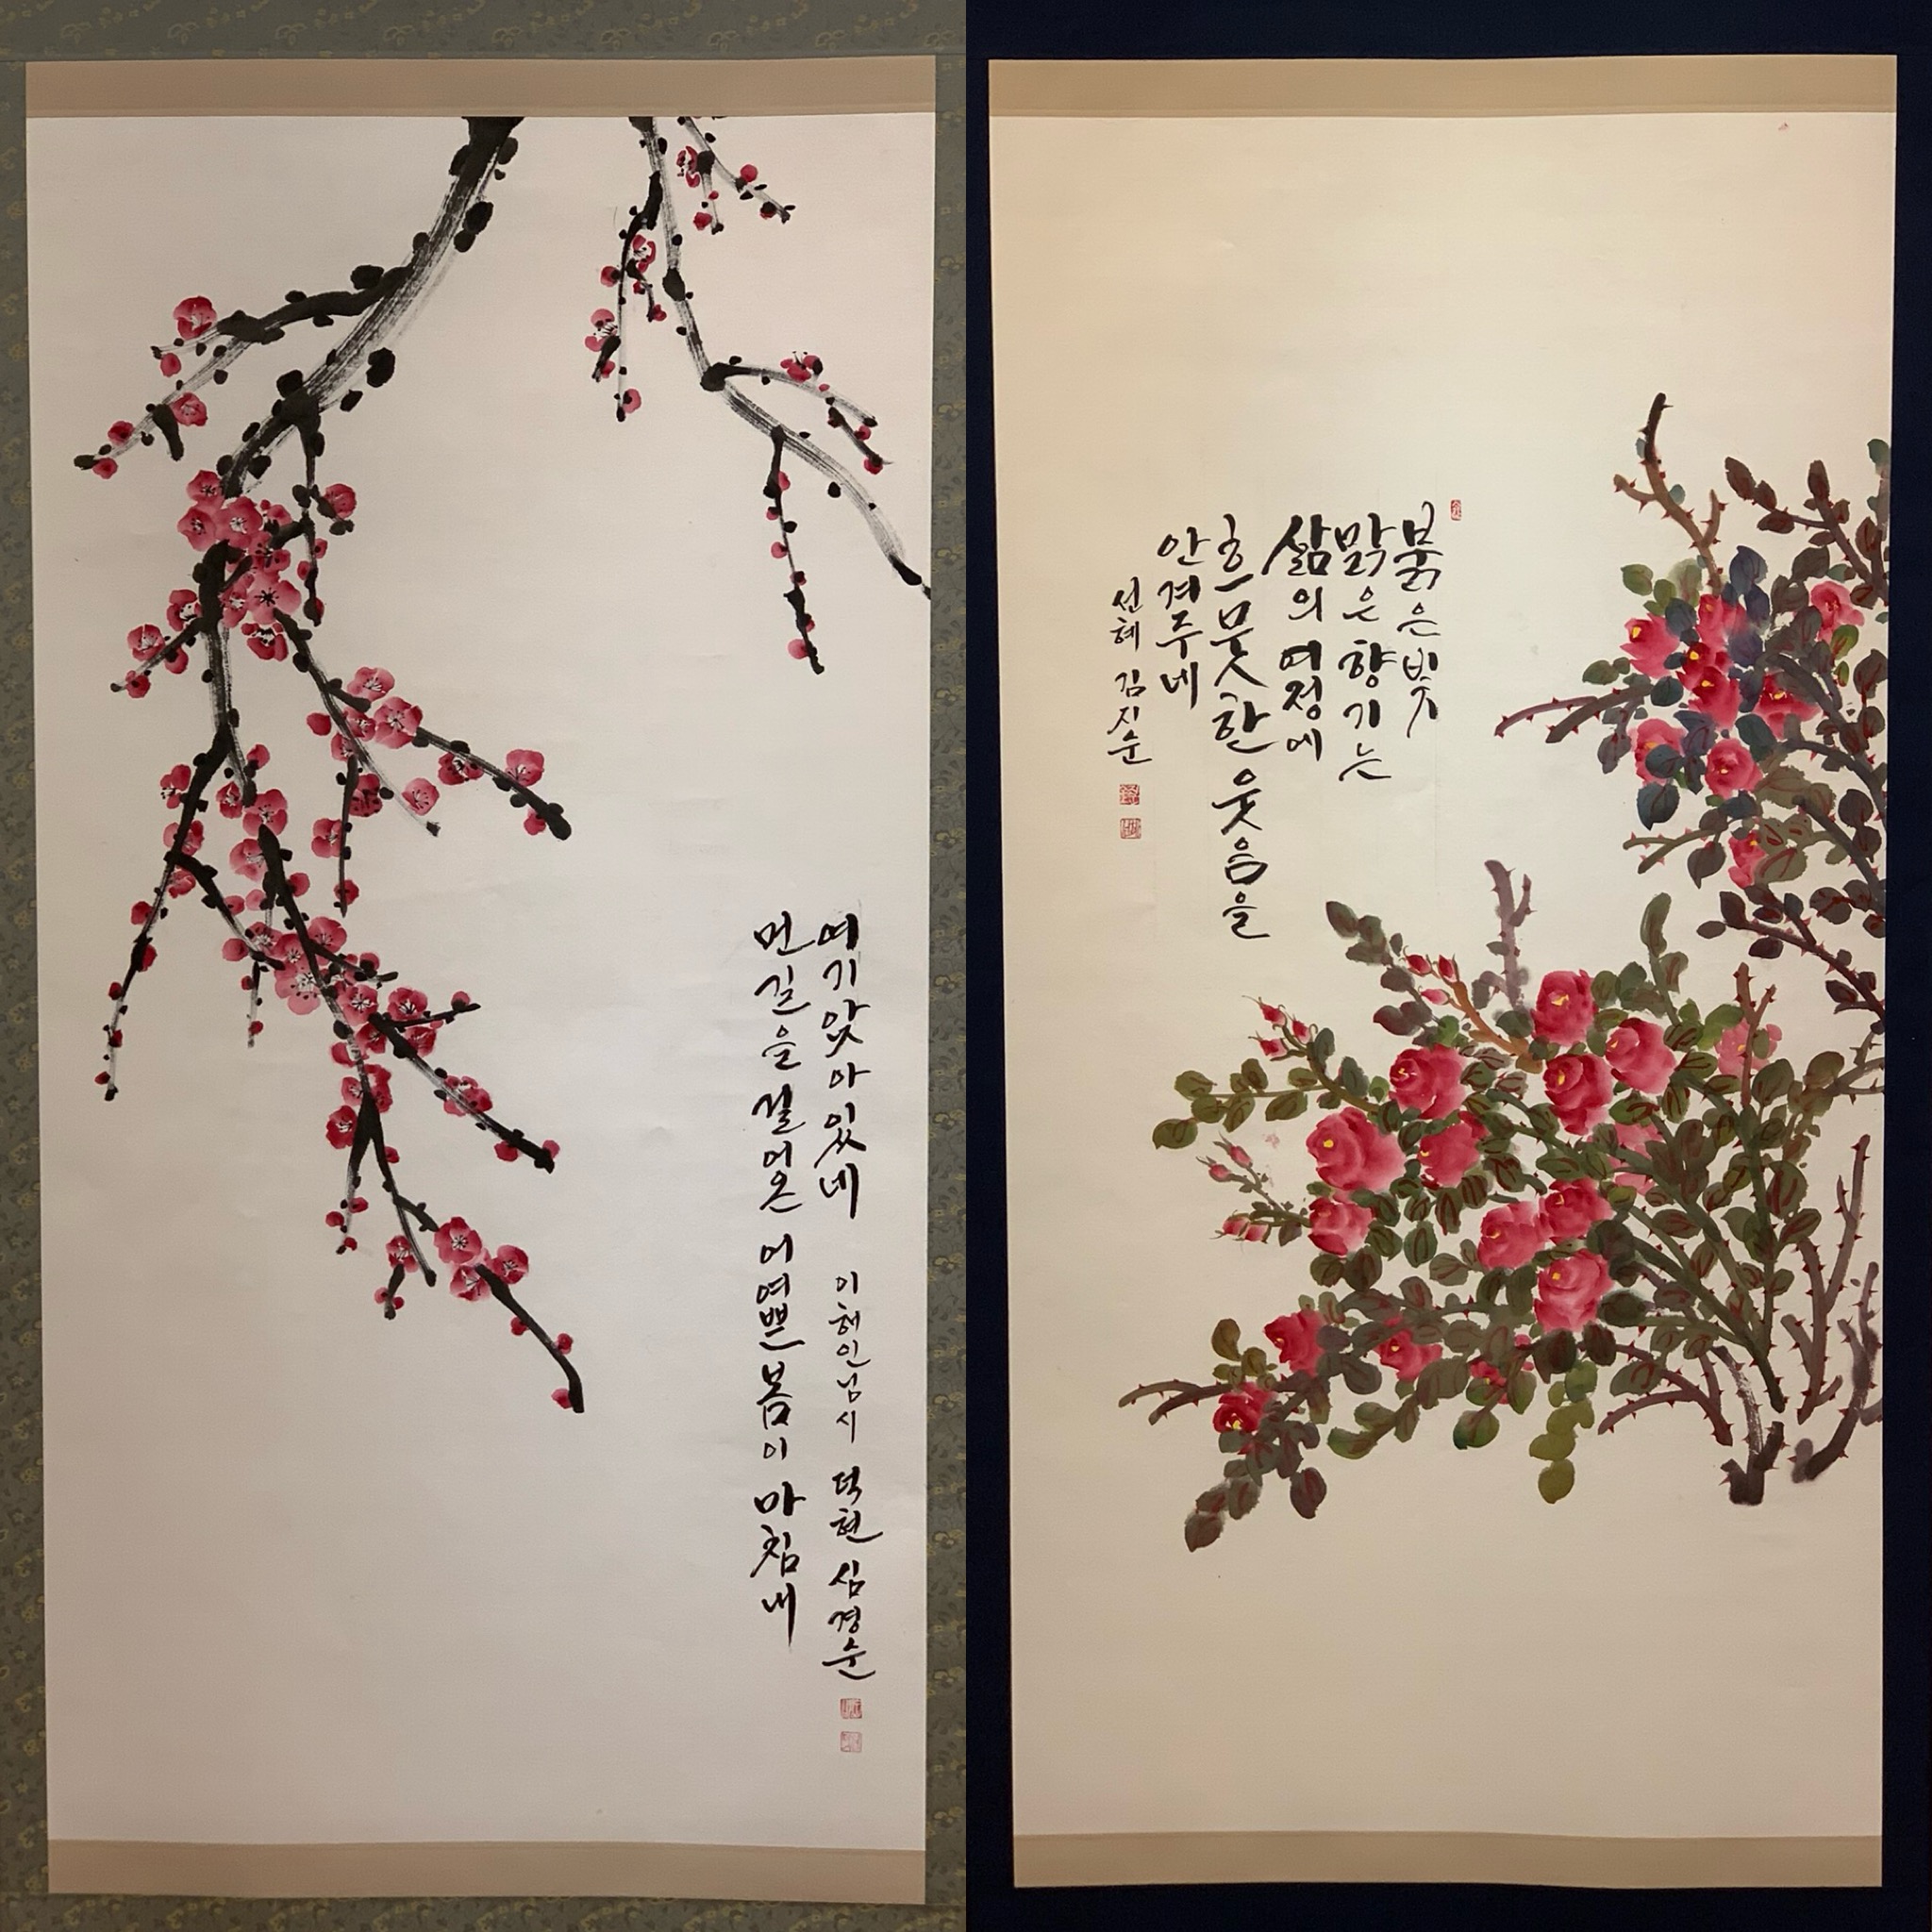 먼 길을 걸어온 어여쁜 봄이 마침내
여기 앉아 있네 이해인님 시 덕현 심경순
붉은 빛
맑은 향기는
삶의 여정에
흐뭇한 웃음을
안겨주네
선혜 김지순